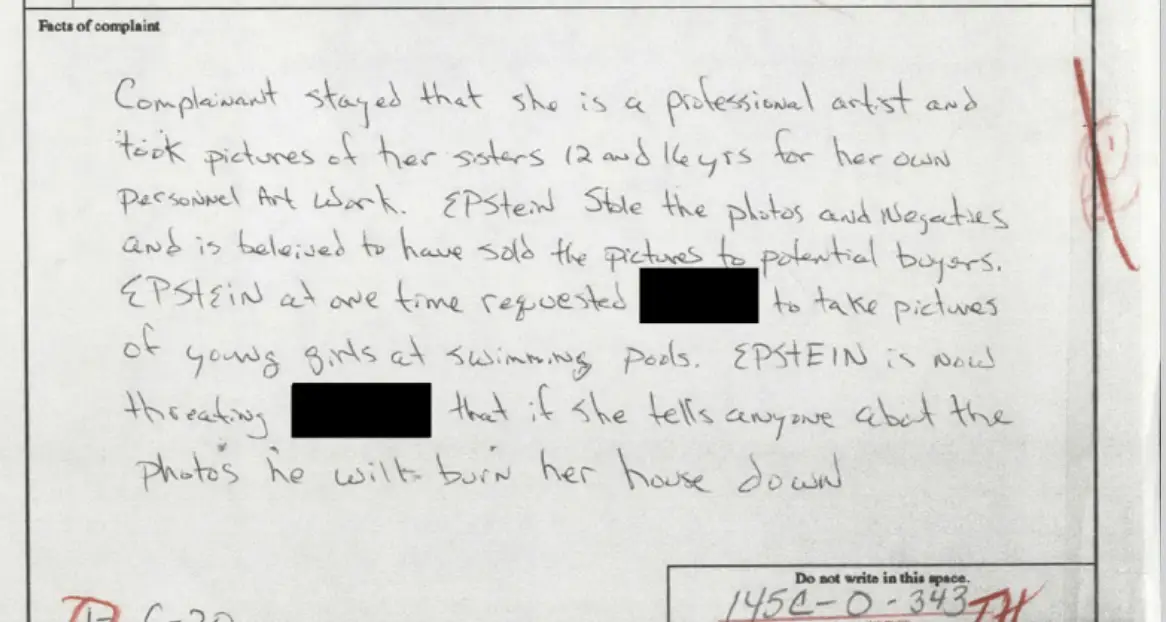 Facts of complaint
Complainant stayed that she is a professional artist and
took pictures of her sisters 12 and 16 yrs for her own
Personnel Art Work. EPStein Stole the photos and Negaties
and is beleived to have sold the pictures to potential buyers.
EPStEiN at one time requested to take pictures
of young girls at swimming pools. EPStEIN is now
threating that if she tells anyone abot the
photos he will burn her house down
Do not write in this space.
145C-0-343 TH